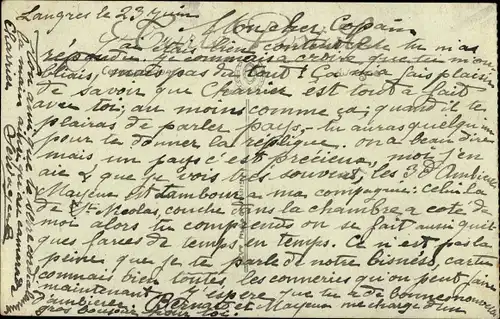 Langres le 23 Juin
Mon cher Copain
Je suis bien content que tu m'as
répondu. Je commais à croire que tu m'ou-
bliais, mais pas du tout! Ça m'a fais plaisir
de savoir que Charrier est tout à fait
avec toi; au moins comme ça, quand il te
plairas de parler pays, tu auras quelqu'un
pour te donner la réplique. On a beau dire
mais un pays c'est précieux, moi j'en
aie & que je vois très souvent, les
Mayeux est tambour a ma compagnie: celui là
de St Nicolas, couche dans la chambre a coté de
moi alors tu comprends on se fait aussi quel-
ques farces de temps en temps. Ce n'est pas la
peine que je te parle de notre bisness, car tu
connais bien toutes les conneries qu'on peut faire
maintenant. J'espère que tu a de bonne nouvelles
d'Ambierle. Bernat et Mayeux me charge d'un
gros bonjour pour toi.
la main ainsi qu'au camarade
Charrier